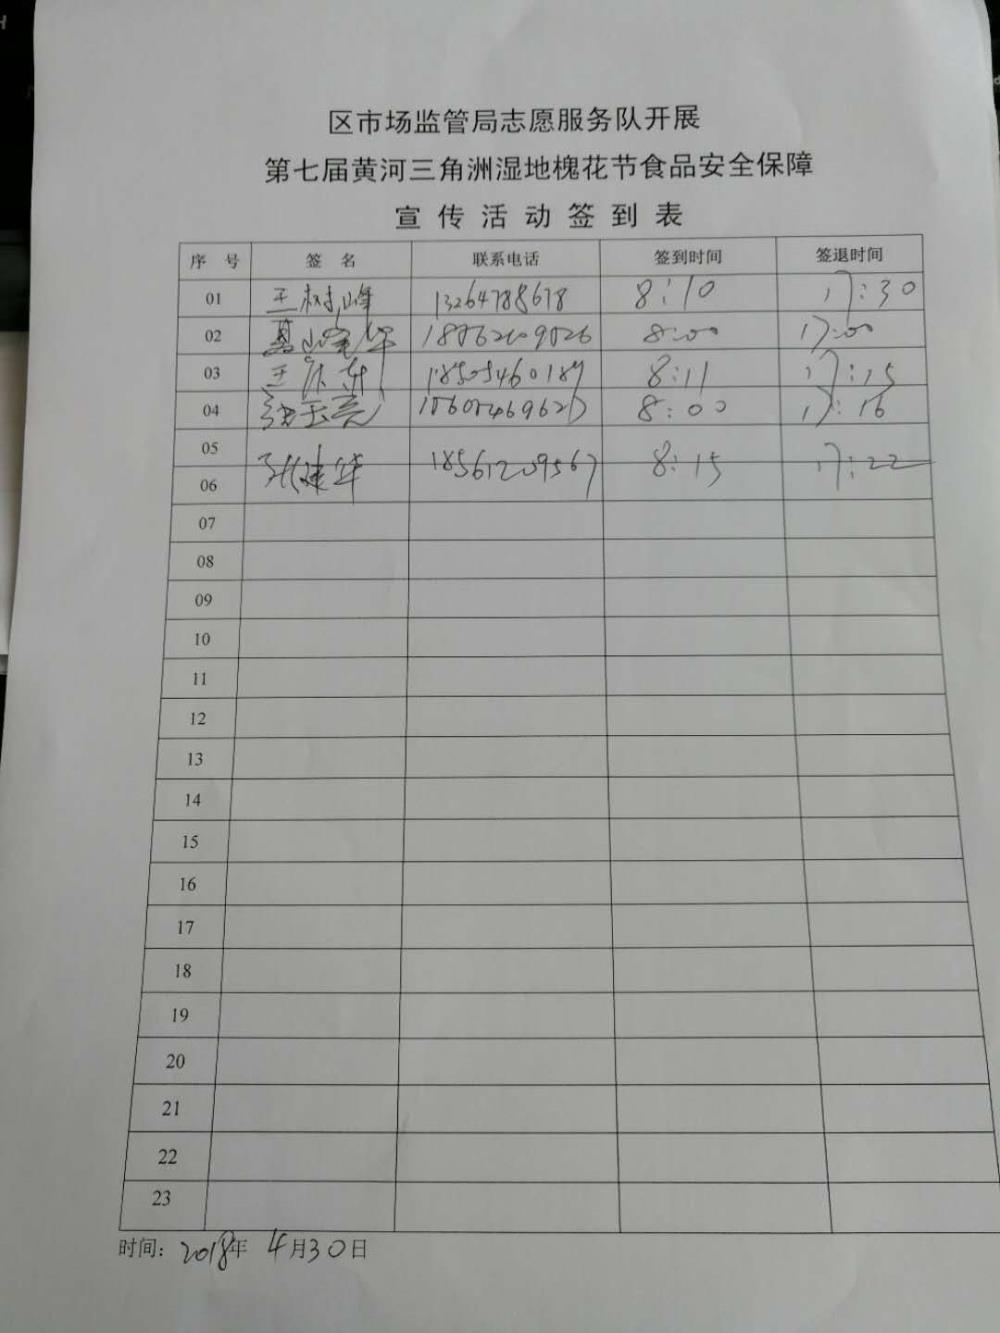 区市场监管局志愿服务队开展
第七届黄河三角洲湿地槐花节食品安全保障
宣传活动签到表
序号 签名 联系电话 签到时间 签退时间
01 王树峰 13264788678 8:10 17:30
02 18062109026 8:00 17:00
03 王庆东 18505460187 8:11 17:15
04 8:00 17:16
05
06 张建华 18561209567 8:15 17:22
07
08
09
10
11
12
13
14
15
16
17
18
19
20
21
22
23
时间: 2018年 4月30日